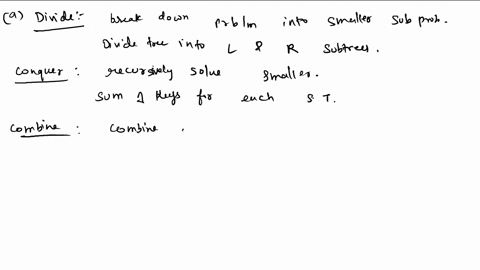 (a) Divide:- break down prblm into smaller sub prob.
Divide tree into L & R subtrees.
Conquer: recursively solve smaller.
Sum of keys for each S T.
Combine: combine